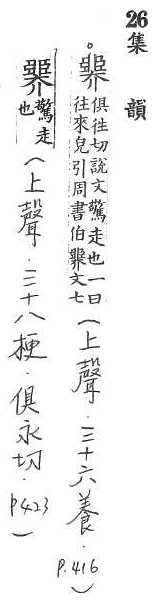 26 集 韻
。臩 俱往切說文驚走也一曰往來皃引周書伯臩文七（上聲．三十六養．P.416）
臩 驚走也（上聲．三十八梗．俱永切 P423）